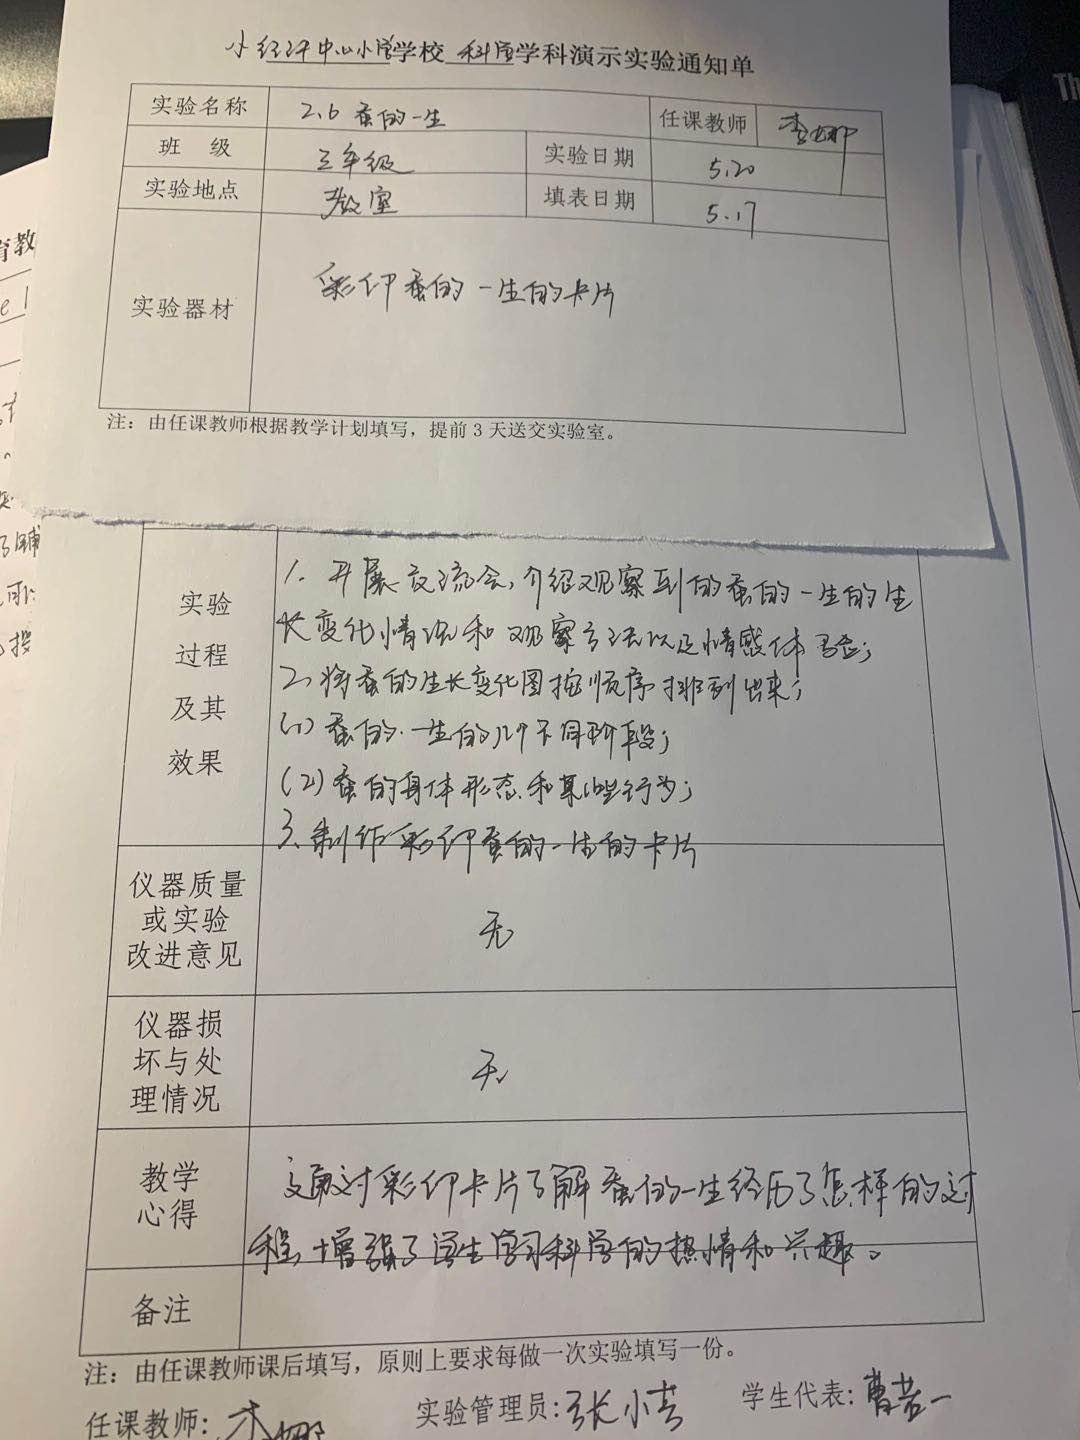 小经环中心小学学校 科学学科演示实验通知单
实验名称 2.6 蚕的一生 任课教师 李娜
班 级 三年级 实验日期 5.20
实验地点 教室 填表日期 5.17
实验器材 彩印蚕的一生的卡片
注：由任课教师根据教学计划填写，提前3天送交实验室。
实验
过程
及其
效果
1. 开展交流会，介绍观察到的蚕的一生的生
长变化情况和观察方法以及情感体验；
2. 将蚕的生长变化图按顺序排列出来；
(1) 蚕的一生的几个不同阶段；
(2) 蚕的身体形态和某些行为；
3. 制作彩印蚕的一生的卡片
仪器质量
或实验
改进意见
无
仪器损
坏与处
理情况
无
教学
心得
通过彩印卡片了解蚕的一生经历了怎样的过
程，增强了学生学习科学的热情和兴趣。
备注
注：由任课教师课后填写，原则上要求每做一次实验填写一份。
任课教师：李娜 实验管理员：张小青 学生代表：曹若一
育教